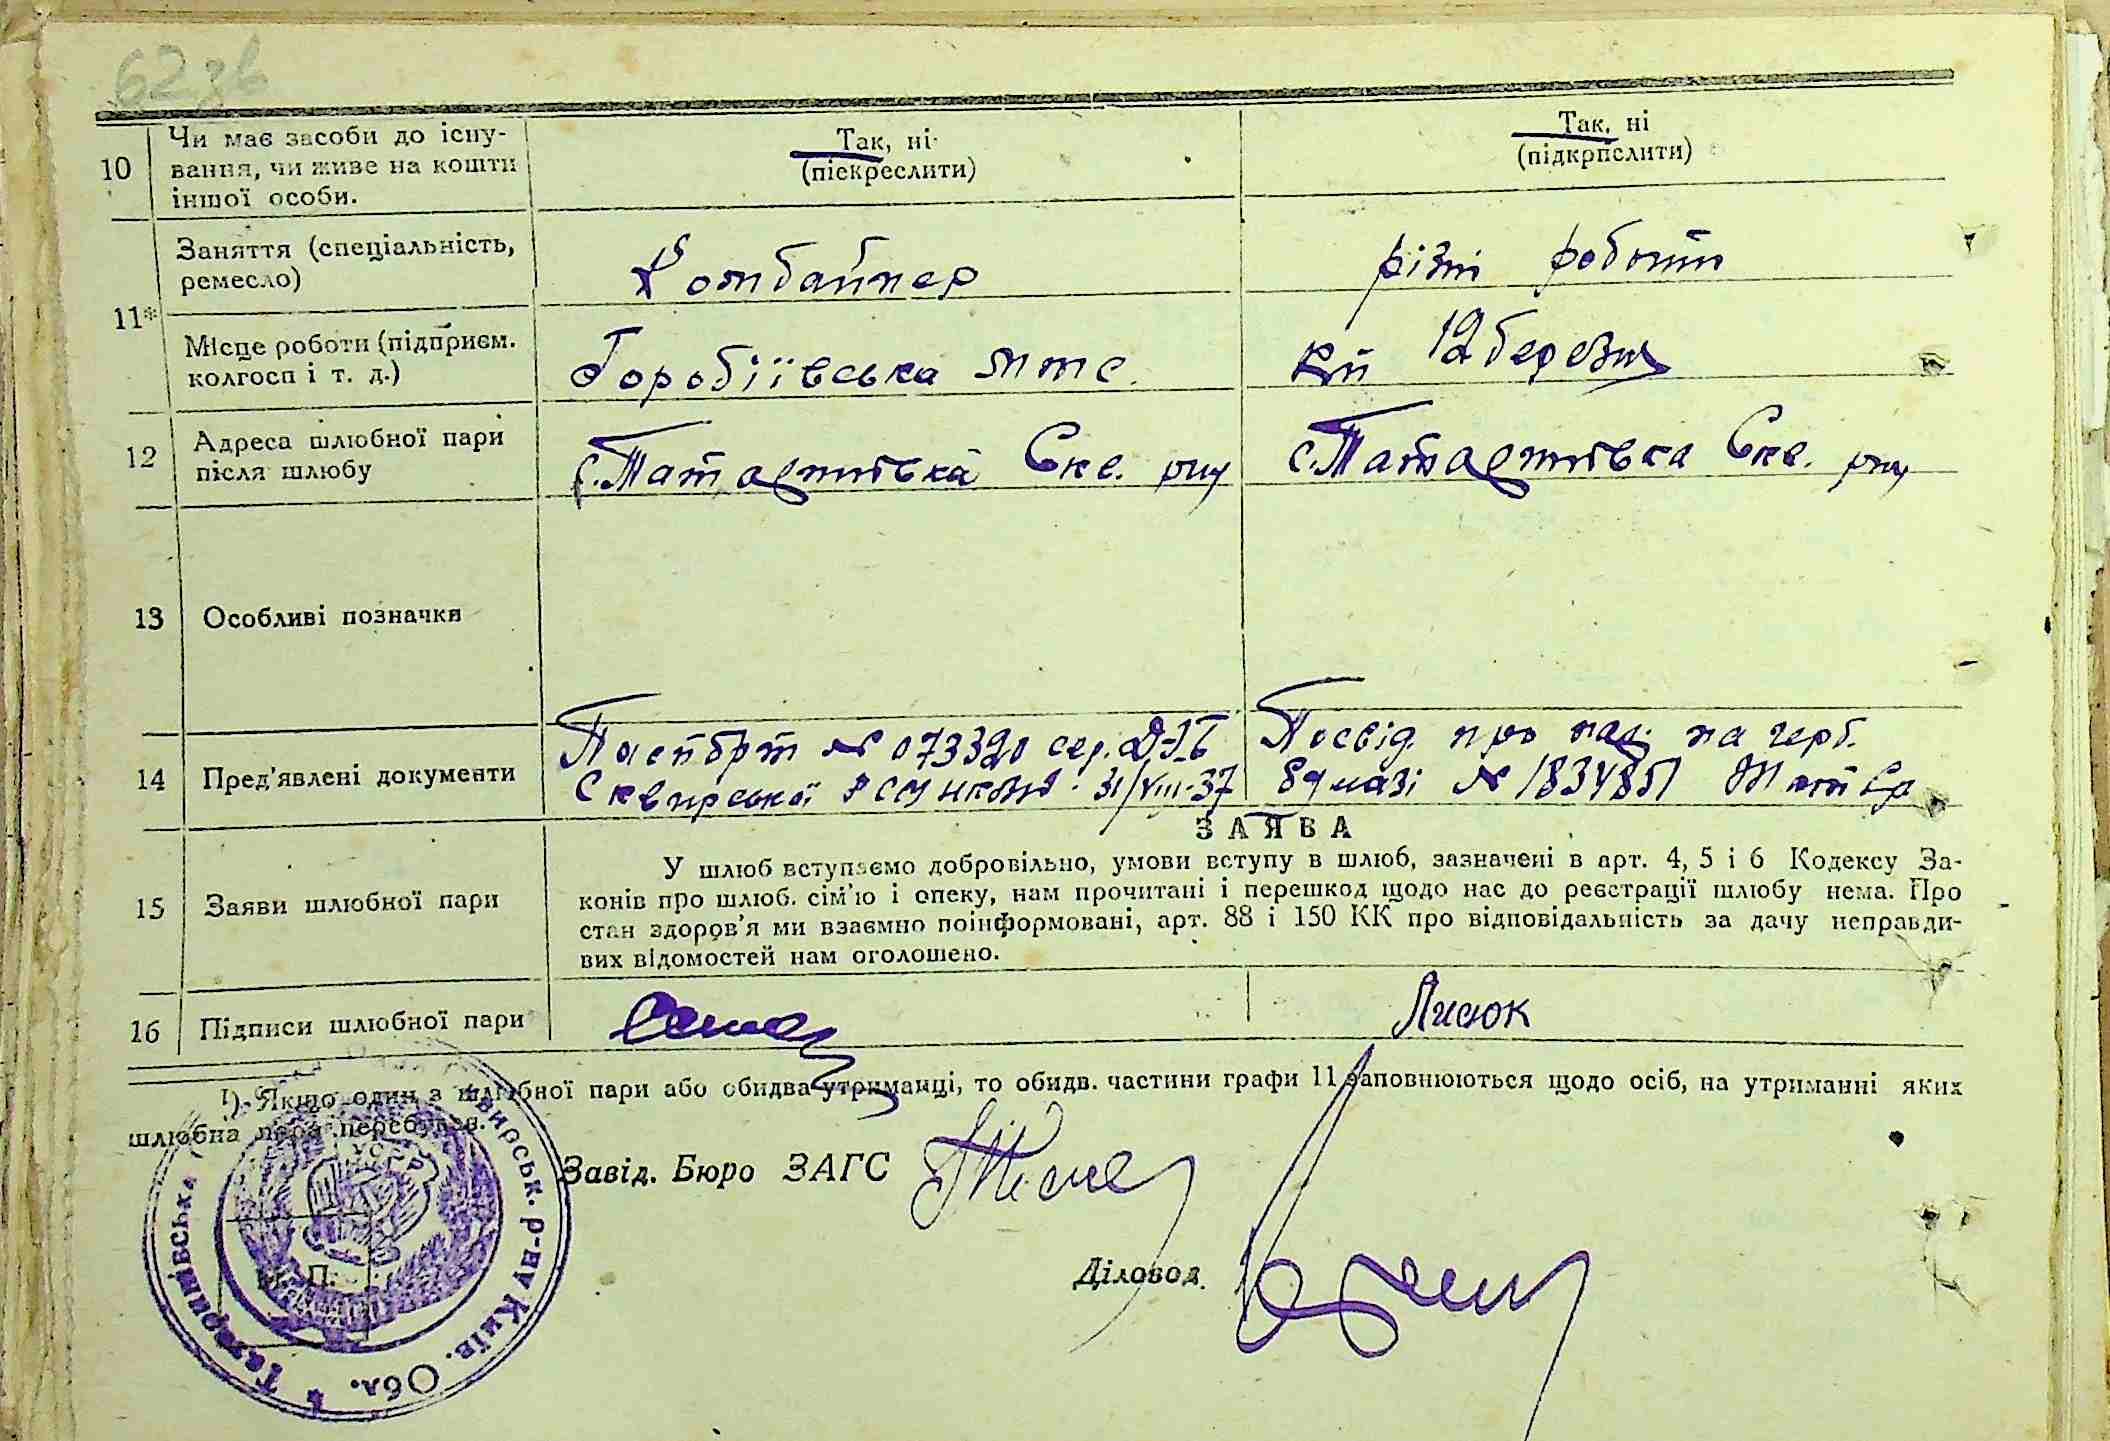 62 зв
10 Чи має засоби до існу-
вання, чи живе на кошти
іншої особи.
Так, ні
(піскреслити)
Так, ні
(підкрпслити)
11* Заняття (спеціальність,
ремесло)
Комбайнер
різні роботи
Місце роботи (підприєм.
колгосп і т. д.)
Горобіївська мтс.
12 березня
12 Адреса шлюбної пари
після шлюбу
с. Татаринівка Скв. р-ну
с. Татаринівка Скв. р-ну
13 Особливі позначки
14 Пред'явлені документи
Паспорт № 073320 сер.
Сквирської НКВД 31/VIII-37
Посвід. про на герб.
бумазі № 1834851
ЗАЯВА
15 Заяви шлюбної пари
У шлюб вступаємо добровільно, умови вступу в шлюб, зазначені в арт. 4, 5 і 6 Кодексу За-
конів про шлюб. сім'ю і опеку, нам прочитані і перешкод щодо нас до реєстрації шлюбу нема. Про
стан здоров'я ми взаємно поінформовані, арт. 88 і 150 КК про відповідальність за дачу неправди-
вих відомостей нам оголошено.
16 Підписи шлюбної пари
Лисюк
1) Якщо один з шлюбної пари або обидва утриманці, то обидв. частини графи 11 заповнюються щодо осіб, на утриманні яких
шлюбна пара перебував.
УСРР
Сквирськ. р-ну Київ. Обл. Татаринівська
М. П.
Завід. Бюро ЗАГС
Діловод